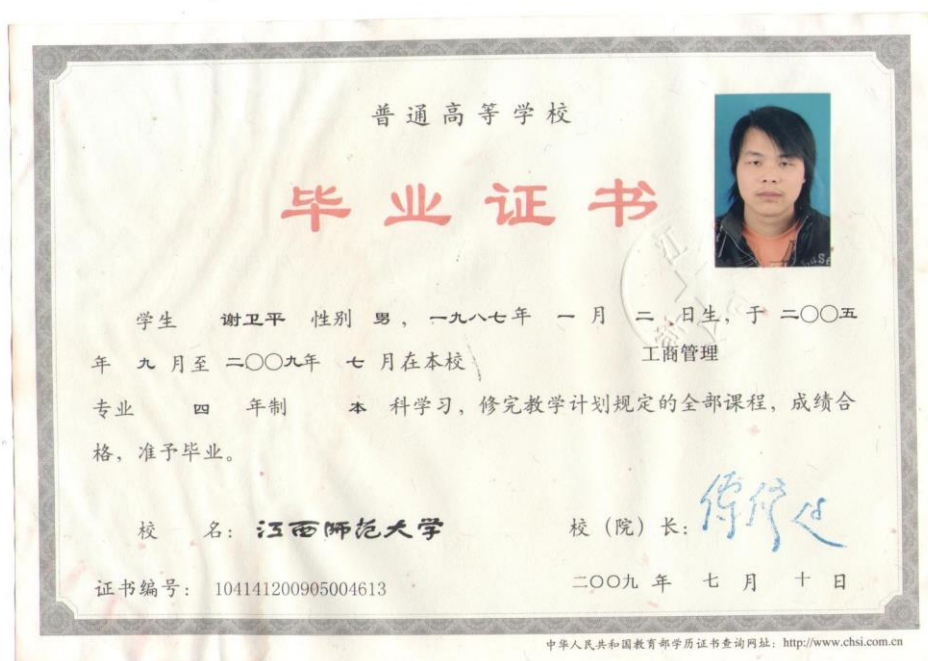 普通高等学校
毕业证书
学生 谢卫平 性别 男,一九八七年 一 月 二 日生,于 二〇〇五
年 九 月至 二〇〇九年 七 月在本校 工商管理
专业 四 年制 本 科学习,修完教学计划规定的全部课程,成绩合
格,准予毕业。
校 名:江西师范大学 校(院)长:
证书编号: 104141200905004613 二〇〇九 年 七 月 十 日
中华人民共和国教育部学历证书查询网址:http://www.chsi.com.cn